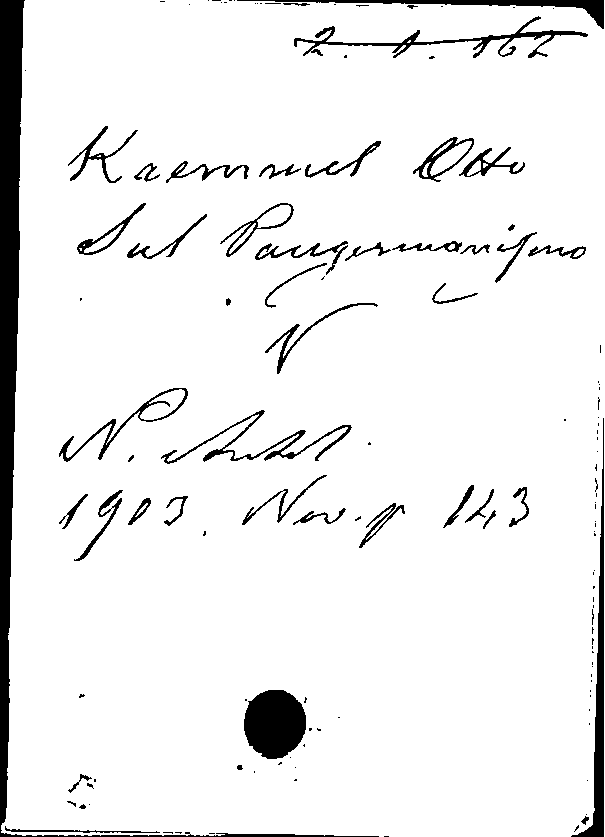 2. 1. 162
Kaemmel Otto
Sul Pangermanismo
V
N. Antol.
1903. Nov. p 143